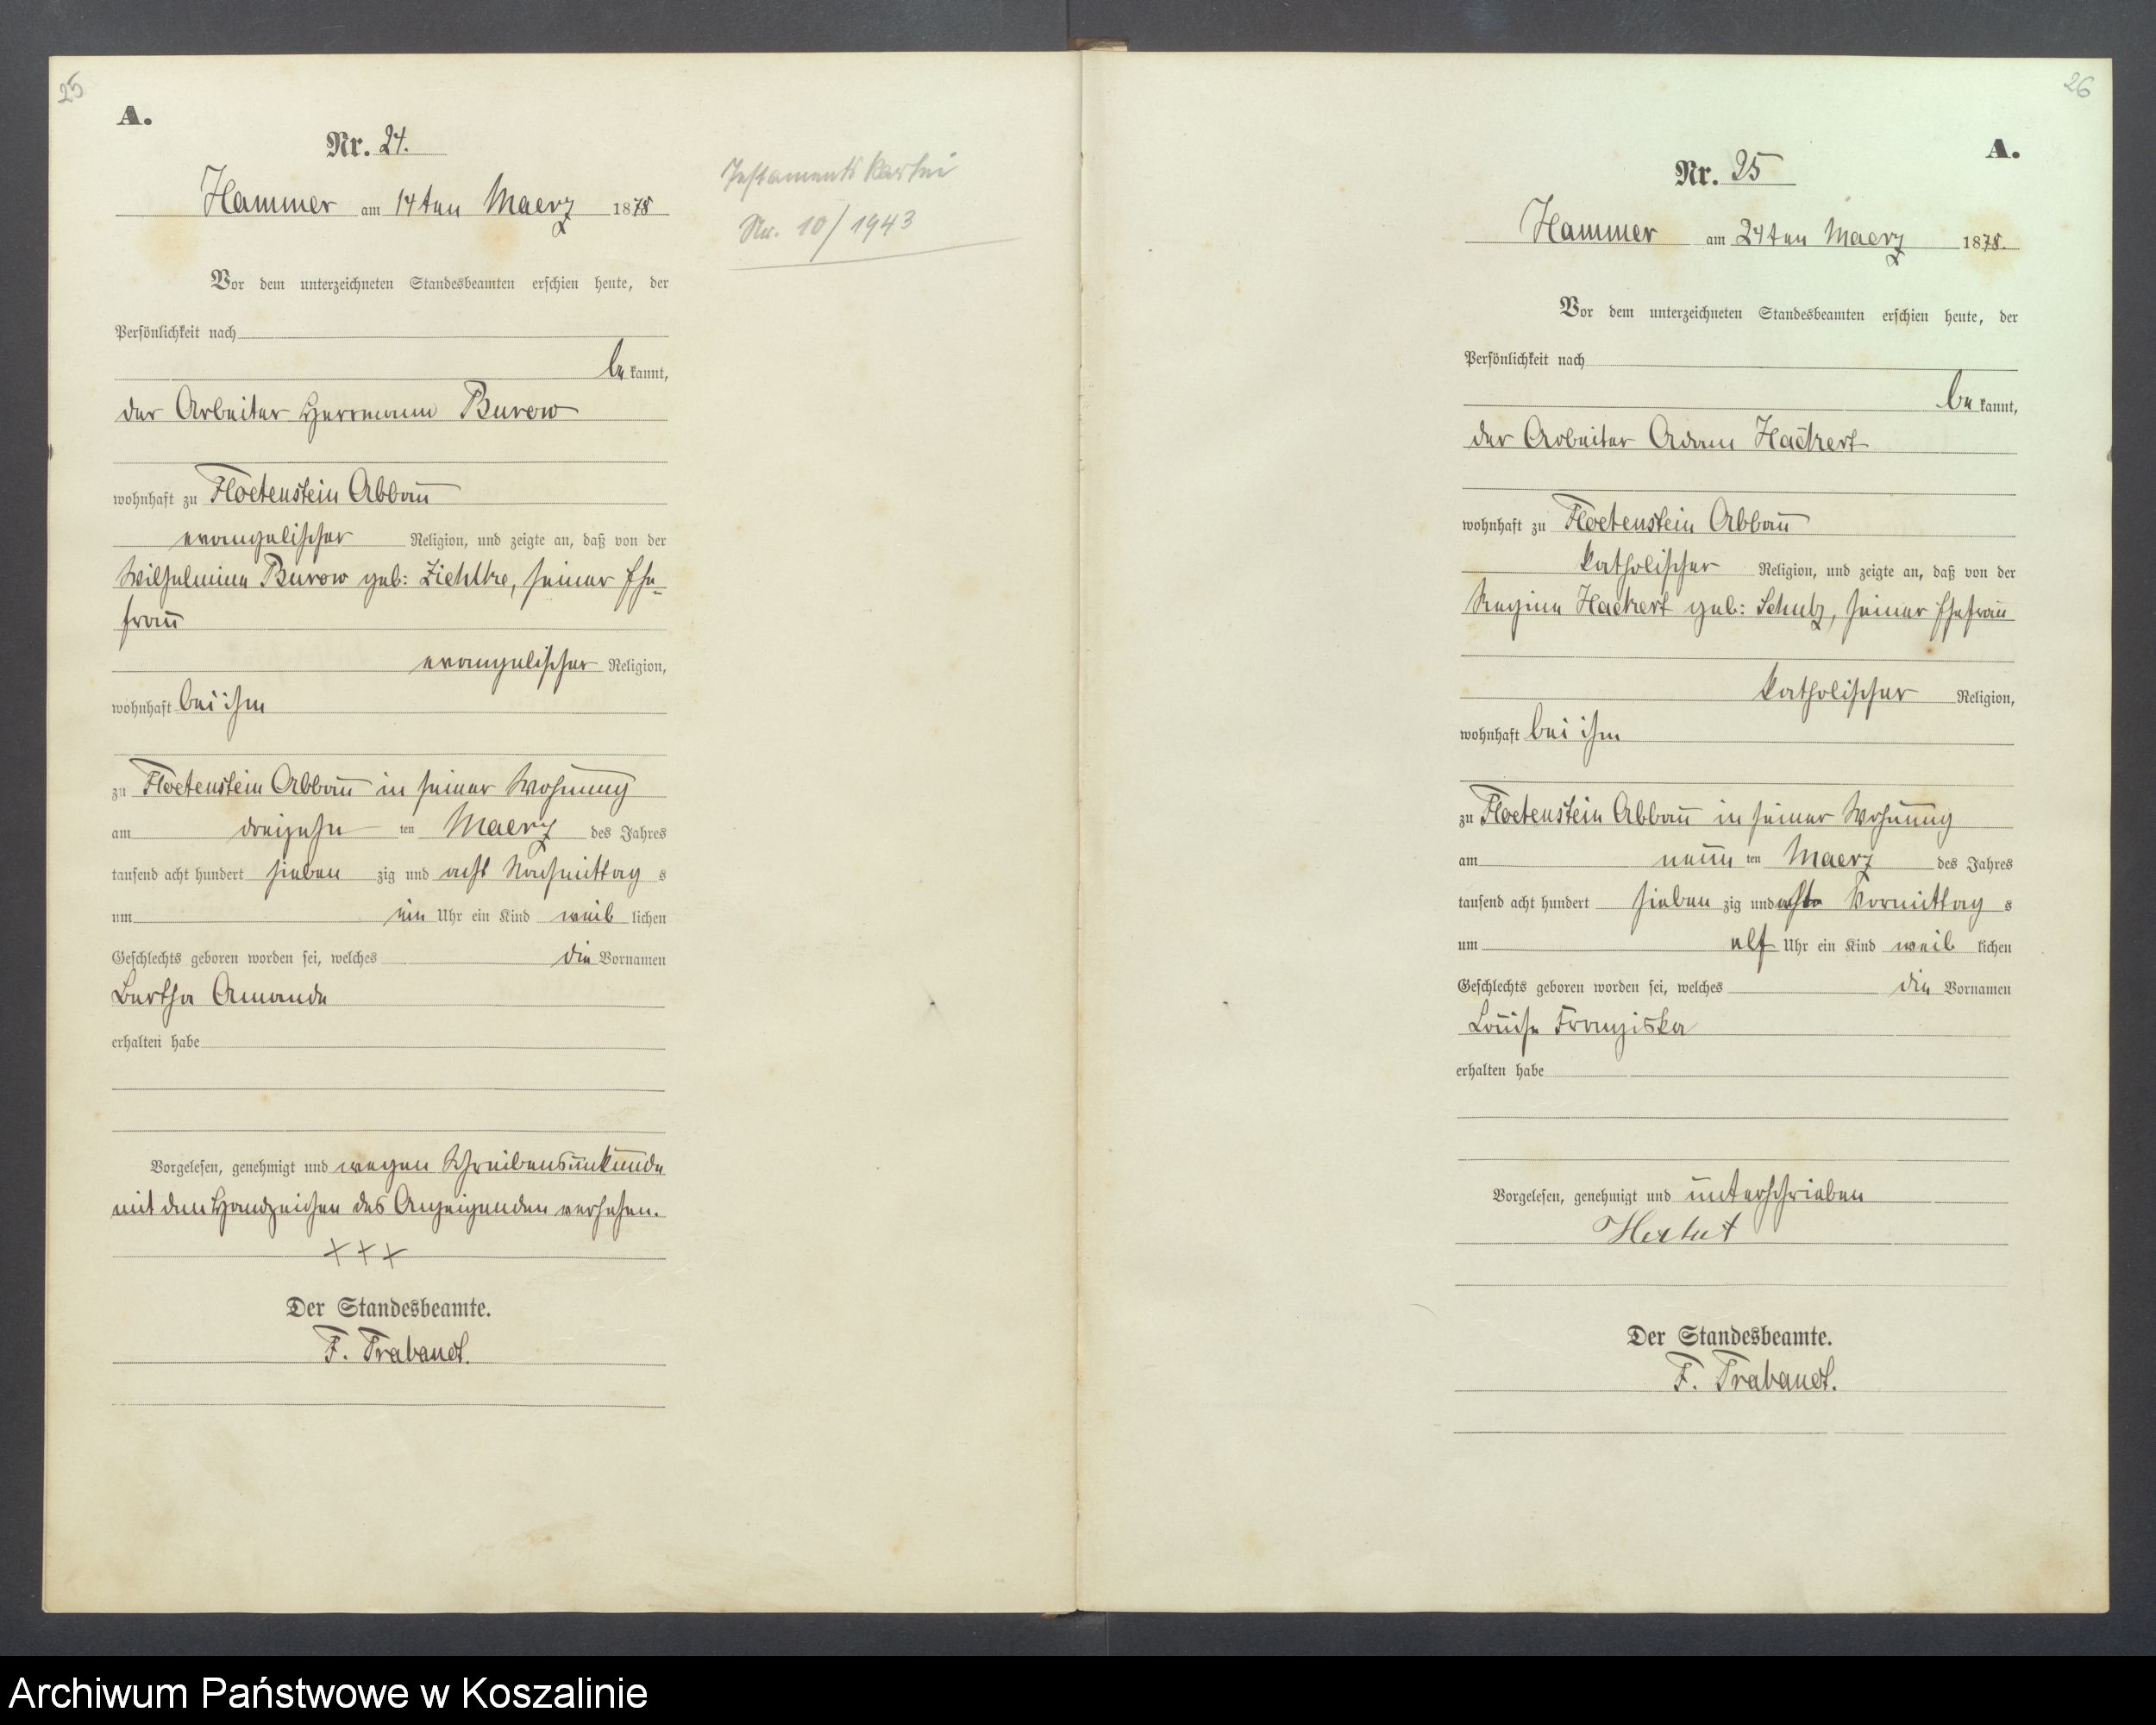 25
A.
Nr. 24.
Hammer am 14ten Maerz 1878
Testaments Kartei
Nr. 10/1943
Vor dem unterzeichneten Standesbeamten erschien heute, der
Persönlichkeit nach
be kannt,
der Arbeiter Herrmann Burow
wohnhaft zu Floetenstein Abbau
evangelischer Religion, und zeigte an, daß von der
Wilhelmine Burow geb: Ziehlke, seiner Ehe-
frau
evangelischer Religion,
wohnhaft bei ihm
zu Floetenstein Abbau in seiner Wohnung
am dreizehn ten Maerz des Jahres
tausend acht hundert sieben zig und acht Nachmittag s
um ein Uhr ein Kind weib lichen
Geschlechts geboren worden sei, welches die Vornamen
Bertha Amande
erhalten habe
Vorgelesen, genehmigt und wegen Schreibensunkunde
mit dem Handzeichen des Anzeigenden versehen.
+++
Der Standesbeamte.
F. Trabandt.
26
A.
Nr. 25
Hammer am 24ten Maerz 1878.
Vor dem unterzeichneten Standesbeamten erschien heute, der
Persönlichkeit nach
be kannt,
der Arbeiter Adam Hackert
wohnhaft zu Floetenstein Abbau
katholischer Religion, und zeigte an, daß von der
Regine Hackert geb: Schulz, seiner Ehefrau
katholischer Religion,
wohnhaft bei ihm
zu Floetenstein Abbau in seiner Wohnung
am neun ten Maerz des Jahres
tausend acht hundert sieben zig und acht Vormittag s
um elf Uhr ein Kind weib lichen
Geschlechts geboren worden sei, welches die Vornamen
Louise Franziska
erhalten habe
Vorgelesen, genehmigt und unterschrieben
Der Standesbeamte.
F. Trabandt.
Archiwum Państwowe w Koszalinie